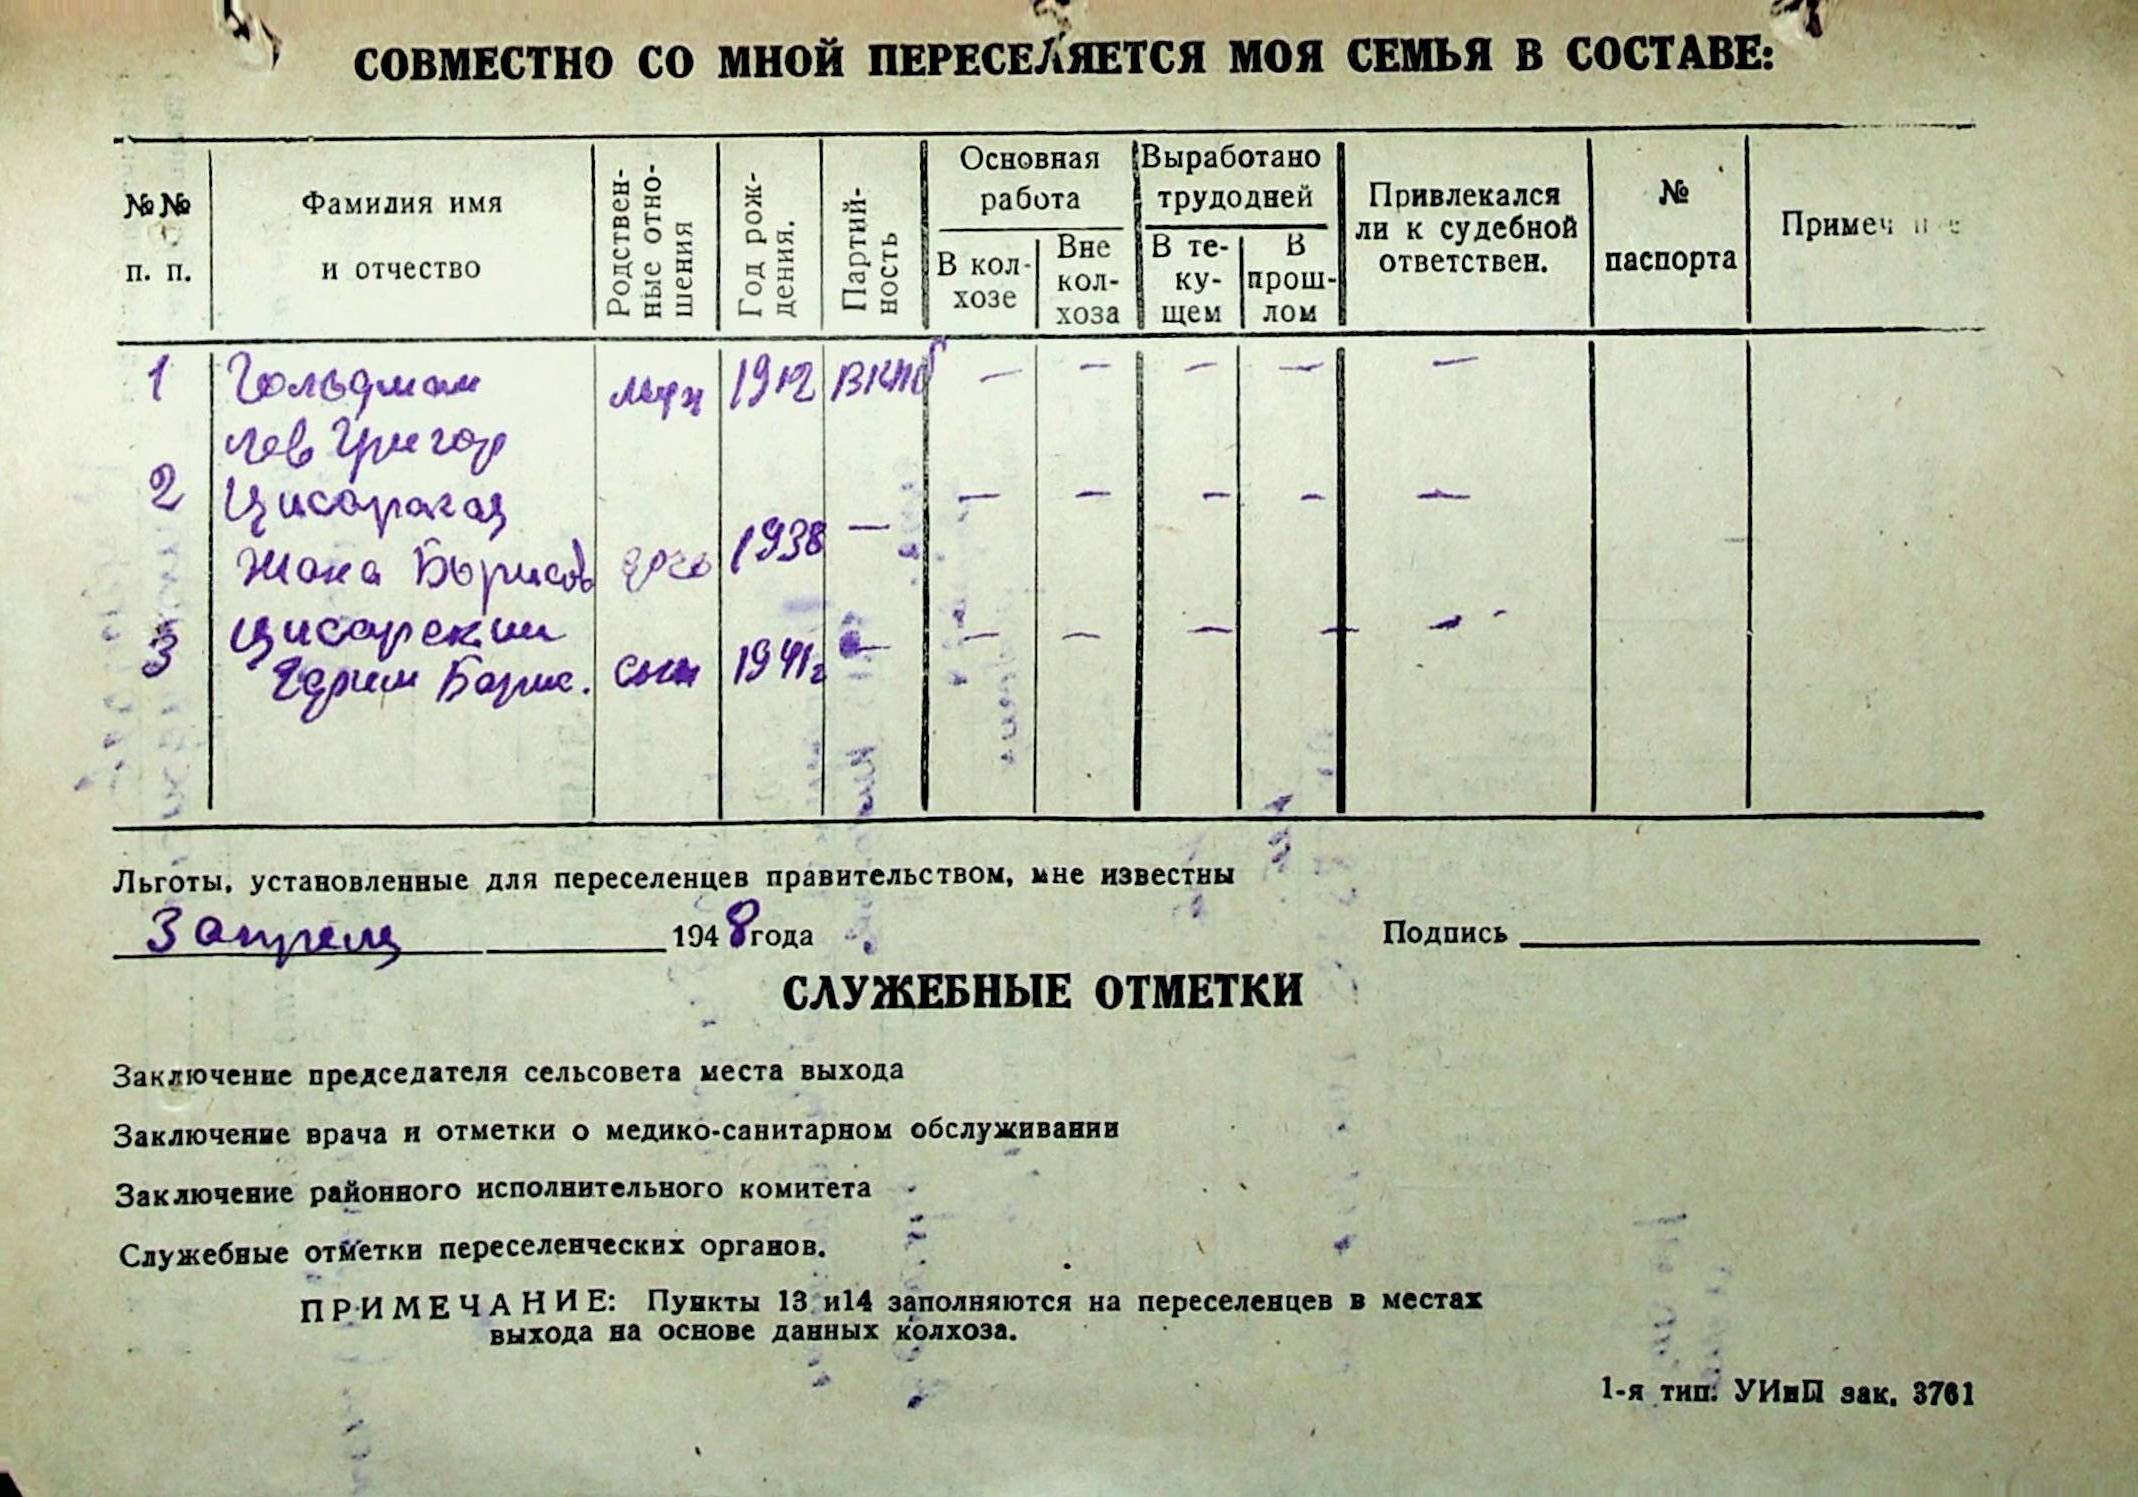 СОВМЕСТНО СО МНОЙ ПЕРЕСЕЛЯЕТСЯ МОЯ СЕМЬЯ В СОСТАВЕ:
№№ п. п.
Фамилия имя и отчество
Родствен-ные отно-шения
Год рож-дения.
Партий-ность
Основная работа
В кол-хозе
Вне кол-хоза
Выработано трудодней
В те-ку-щем
В прош-лом
Привлекался ли к судебной ответствен.
№ паспорта
Примеч
1 Гольдман муж 1912 ВКПб — — — — —
Лев Григор
2 Цисарская — — — — —
Жана Борисов дочь 1938 —
3 Цисарский — — — — —
Борис. сын 1941г —
Льготы, установленные для переселенцев правительством, мне известны
3 апреля 1948 года Подпись
СЛУЖЕБНЫЕ ОТМЕТКИ
Заключение председателя сельсовета места выхода
Заключение врача и отметки о медико-санитарном обслуживании
Заключение районного исполнительного комитета
Служебные отметки переселенческих органов.
ПРИМЕЧАНИЕ: Пункты 13 и14 заполняются на переселенцев в местах
выхода на основе данных колхоза.
1-я тип. УИиП зак. 3761